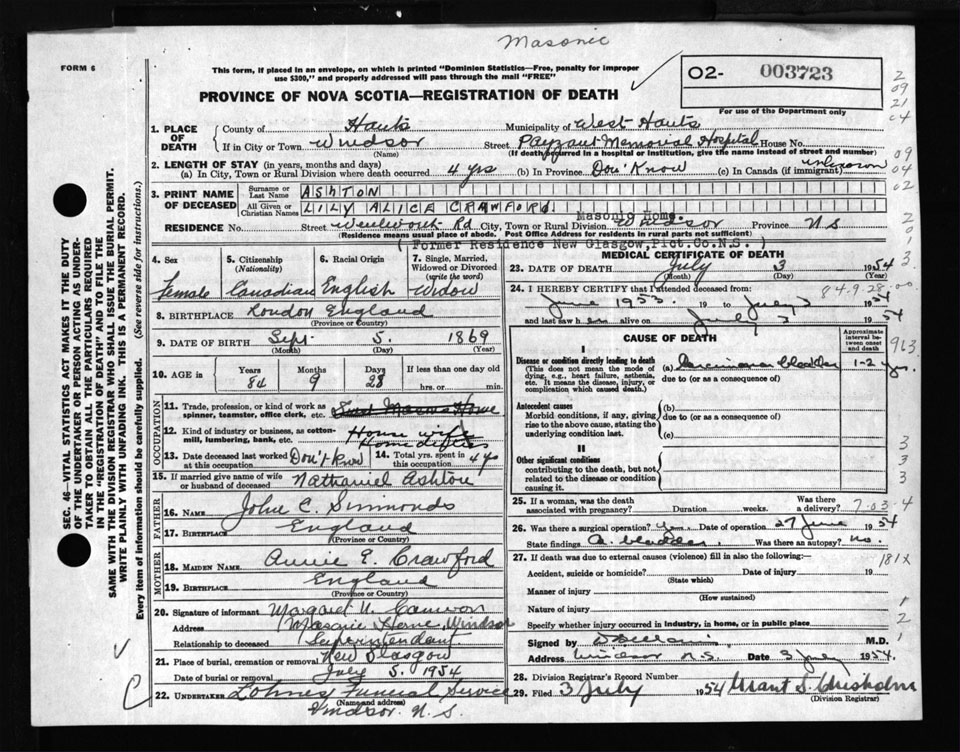 Masonic
FORM 6
This form, if placed in an envelope, on which is printed "Dominion Statistics—Free, penalty for improper
use $300," and properly addressed will pass through the mail "FREE"
O2- 003723
For use of the Department only
PROVINCE OF NOVA SCOTIA—REGISTRATION OF DEATH
2
09
21
04
09
04
02
2
0
1
3
1. PLACE OF DEATH County of Hants Municipality of West Hants
If in City or Town Windsor Street Payzant Memorial Hospital House No.
(Name) (If death occurred in a hospital or institution, give the name instead of street and number)
2. LENGTH OF STAY (in years, months and days)
(a) In City, Town or Rural Division where death occurred 4 yrs (b) In Province Don' Know (c) In Canada (if immigrant) unknown
3. PRINT NAME OF DECEASED Surname or Last Name ASHTON
All Given or Christian Names LILY ALICE CRAWFORD.
Masonic Home.
RESIDENCE No. Street Wentworth Rd City, Town or Rural Division Windsor Province N S
(Residence means usual place of abode. Post Office Address for residents in rural parts not sufficient)
( Former Residence New Glasgow,Pict.Co.N.S. )
4. Sex Female
5. Citizenship (Nationality) Canadian
6. Racial Origin English
7. Single, Married, Widowed or Divorced (write the word) Widow
8. BIRTHPLACE London England
(Province or Country)
9. DATE OF BIRTH Sept- 5. 1869
(Month) (Day) (Year)
10. AGE in Years 84 Months 9 Days 28 If less than one day old
hrs. or min.
OCCUPATION
11. Trade, profession, or kind of work as spinner, teamster, office clerk, etc.
12. Kind of industry or business, as cotton-mill, lumbering, bank, etc. House wife
Home duties
13. Date deceased last worked at this occupation Don't Know 14. Total yrs. spent in this occupation 4 yrs
15. If married give name of wife or husband of deceased Nathaniel Ashton
FATHER
16. NAME John C. Simmonds
17. BIRTHPLACE England
(Province or Country)
MOTHER
18. MAIDEN NAME Annie E. Crawford
19. BIRTHPLACE England
(Province or Country)
20. Signature of informant Margaret N. Cameron
Address Masonic Home, Windsor
Relationship to deceased Superintendant
21. Place of burial, cremation or removal New Glasgow
Date of burial or removal July 5. 1954
22. UNDERTAKER Lohnes Funeral Service
(Name and address)
Windsor. N. S.
MEDICAL CERTIFICATE OF DEATH
23. DATE OF DEATH July 3 1954
(Month) (Day)
24. I HEREBY CERTIFY that I attended deceased from: 84-9-28-00
June 1953. 19 to July 3 1954
and last saw h er alive on July 3 1954
CAUSE OF DEATH
Approximate interval between onset and death
963
I
Disease or condition directly leading to death
(This does not mean the mode of dying, e.g., heart failure, asthenia, etc. It means the disease, injury, or complication which caused death.)
(a) Carcinoma bladder 1-2 yrs.
due to (or as a consequence of)
Antecedent causes
Morbid conditions, if any, giving rise to the above cause, stating the underlying condition last.
(b)
due to (or as a consequence of)
(c)
II
Other significant conditions
contributing to the death, but not related to the disease or condition causing it.
3
3
3
3
25. If a woman, was the death associated with pregnancy? Duration weeks. Was there a delivery? 7-03-4
26. Was there a surgical operation? Yes. Date of operation 27 June 1954
State findings Ca. bladder. Was there an autopsy? no.
27. If death was due to external causes (violence) fill in also the following:— 181X
Accident, suicide or homicide? Date of injury 19
(State which)
Manner of injury
(How sustained)
Nature of injury 1
Specify whether injury occurred in industry, in home, or in public place 2
Signed by M.D. 1
Address Windsor N.S. Date 3 July 1954.
28. Division Registrar's Record Number
29. Filed 3 July 1954 Grant S. Chisholm
(Division Registrar)
SEC. 46—VITAL STATISTICS ACT MAKES IT THE DUTY
OF THE UNDERTAKER OR PERSON ACTING AS UNDER-
TAKER TO OBTAIN ALL THE PARTICULARS REQUIRED
IN THE "REGISTRATION OF DEATH" AND TO FILE THE
SAME WITH THE DIVISION REGISTRAR WHO SHALL ISSUE THE BURIAL PERMIT.
WRITE PLAINLY WITH UNFADING INK. THIS IS A PERMANENT RECORD.
Every item of information should be carefully supplied. (See reverse side for instructions.)